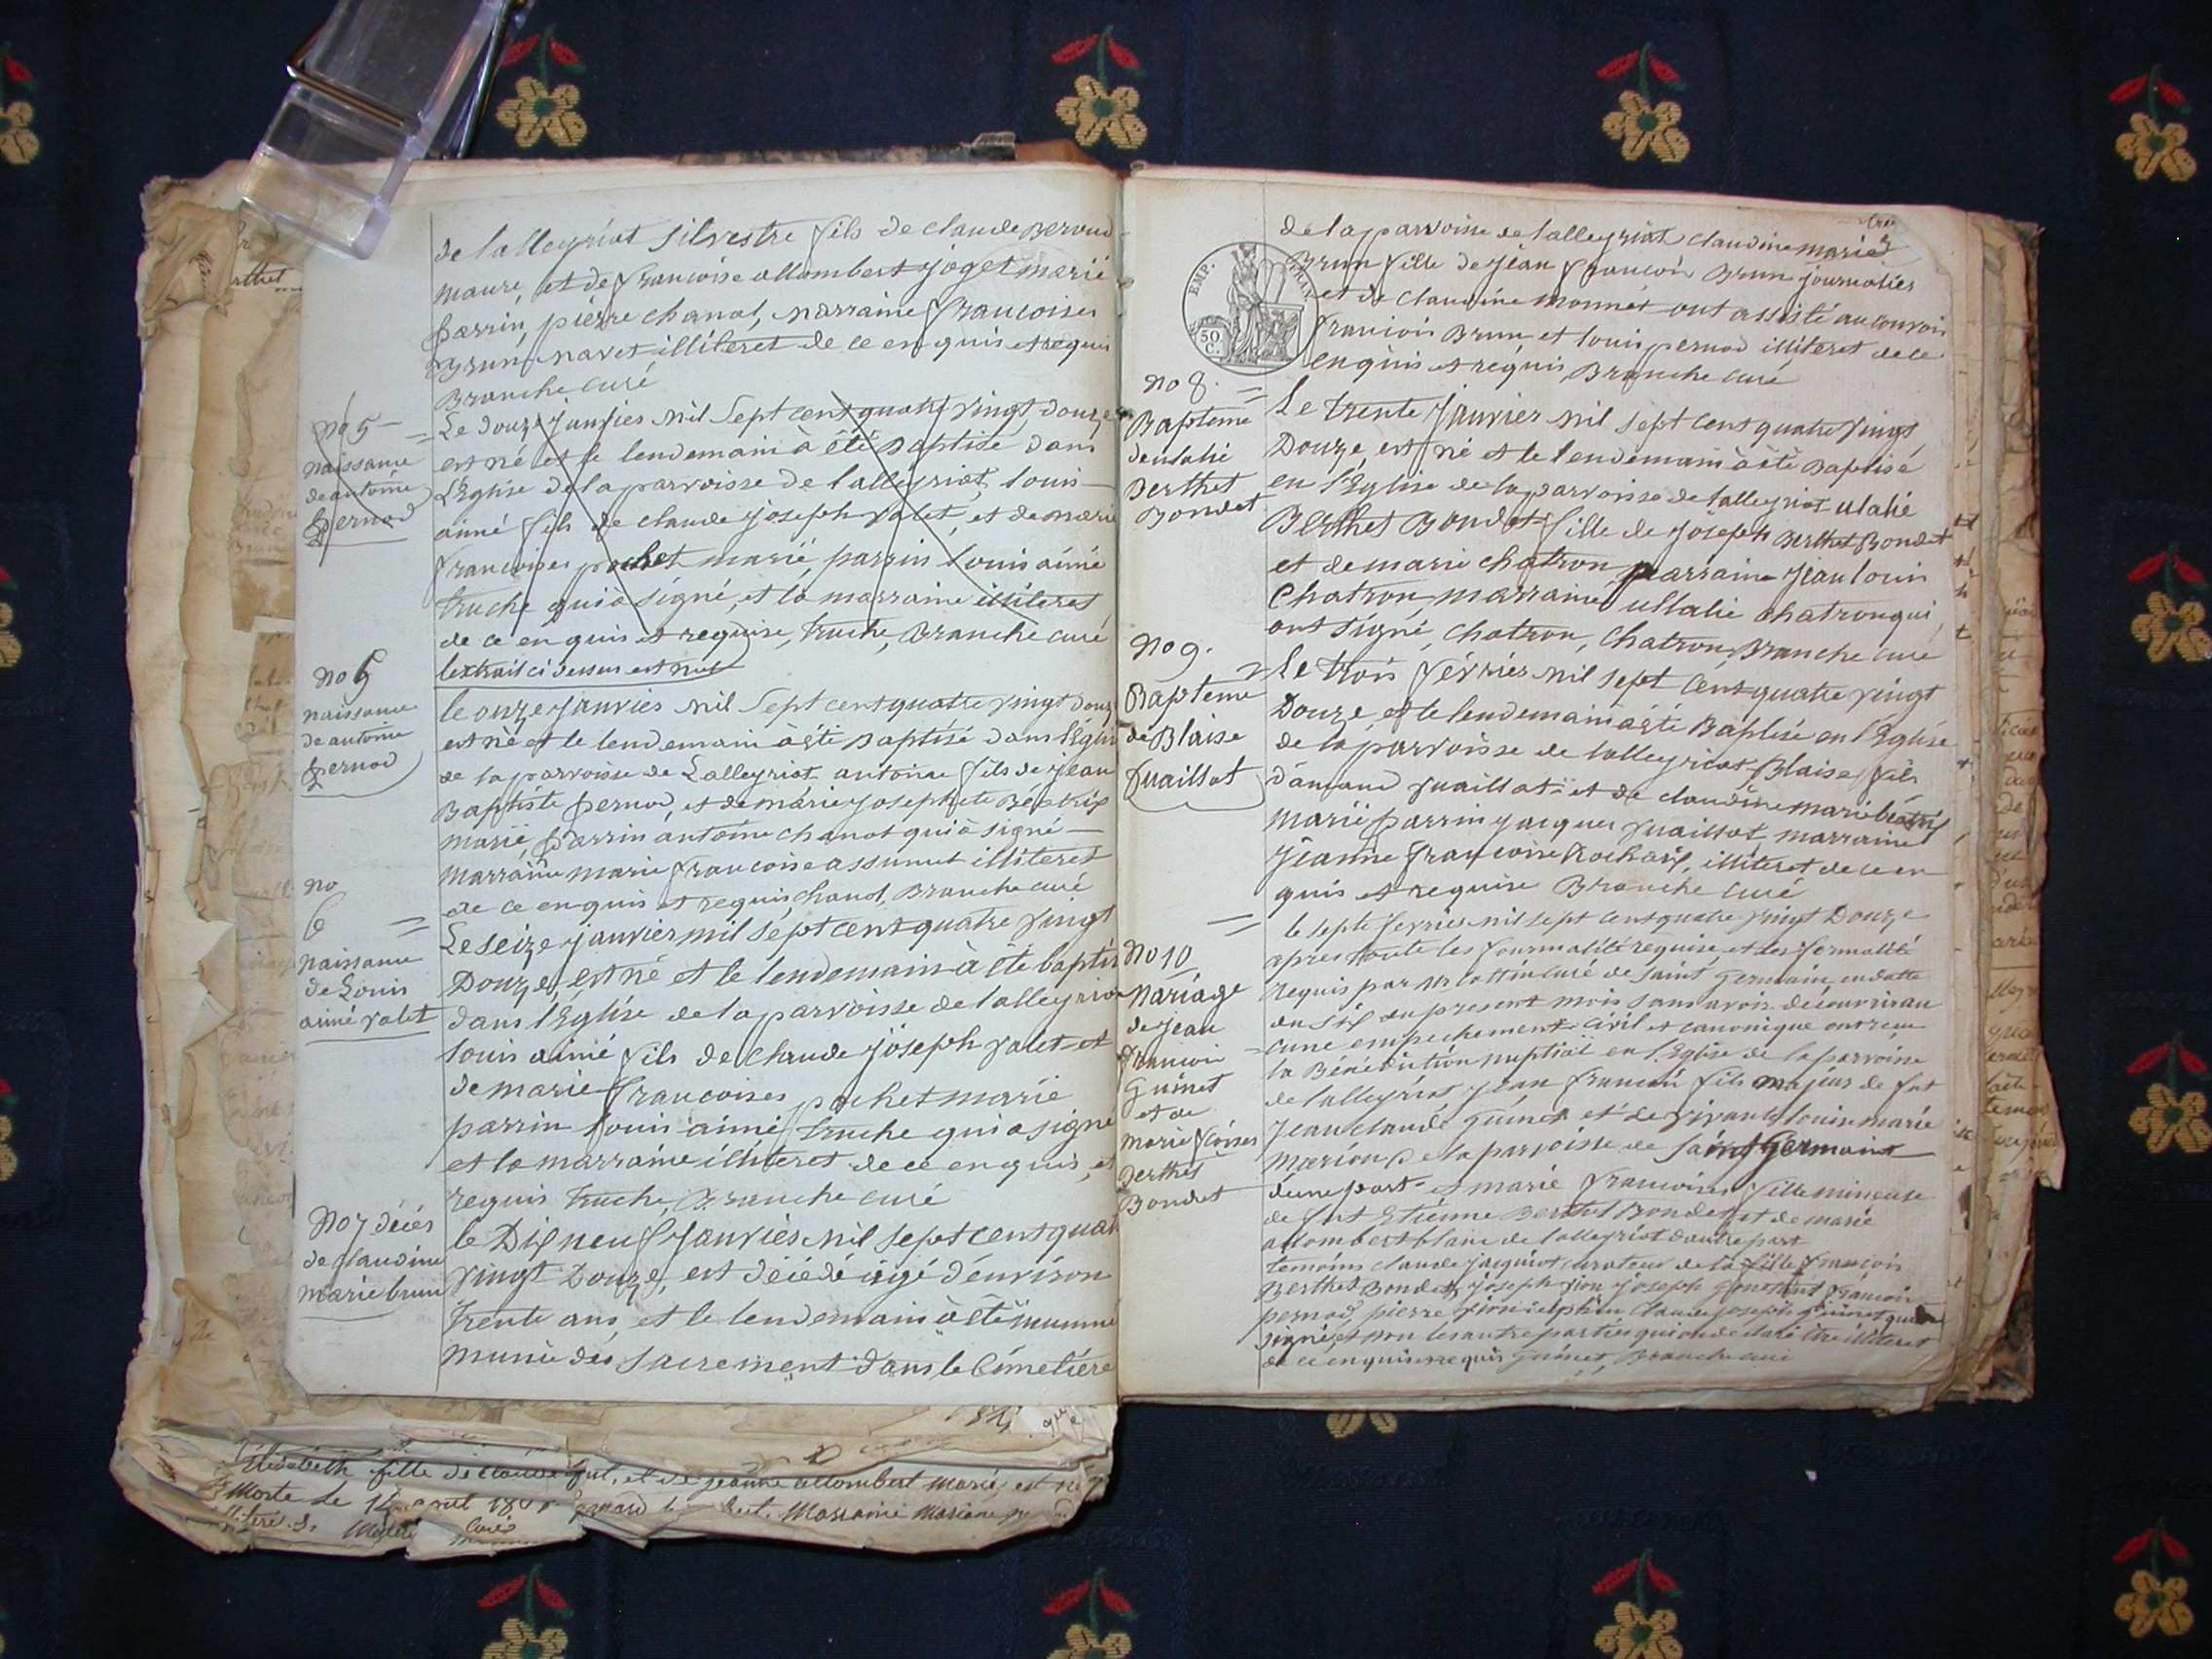 de lalleyriat Silvestre fils de claude Beroud
maure, et de francoise allombert joget marié
parrin, pierre chanal, marraine francoises
Brun navet illiteret de ce enquis et requis
Branche curé
no 5
naissance
de antoine
pernod
Le douze janvies mil Sept cent quatre vingt douze
est né et le lendemain à été Baptisé dans
L'Eglise de la parroisse de lalleyriat, louis
aimé fils de claude joseph valet, et de marie
francoises pochet marié, parrin louis aimé
truche qui a signé, et la marraine illiteret
de ce enquis et requise, truche, Branche curé
lextrait ci dessus est nul
no 5
naissance
de antoine
pernod
le onze janvies mil Sept cent quatre vingt douze
est né et le lendemain à été Baptisé dans l'Eglise
de la parroisse de Lalleyriat antoine fils de jean
Baptiste pernod, et de marie josephete Béatrix
marié, parrin antoine chanot qui à signé
marraine marie francoise assumut illiteret
de ce enquis et requis, chanot, Branche curé
no
6
naissance
de Louis
aimé valet
Le seize janvier mil sept cent quatre vingt
Douze, est né et le lendemain à été baptis
dans l'Eglise de la parroisse de lalleyriat
louis aimé fils de claude joseph valet et
de marie francoises pochet marié
parrin louis aimé truche qui a signé
et la marraine illiteret de ce enquis, et
requis truche, Branche curé
no 7 décés
de claudine
marie brun
le Dix neuf janvies mil sept cent quat
vingt Douze, est décédé agé d'environ
trente ans, et le lendemain à été inumme
munie des sacrement dans le Cimetiére
de la parroisse de lalleyriat claudine marie
EMP.
50
C.
Brun fille de jean francois Brun journaliés
et de claudine monnet ont assisté au convoi
francois Brun et louis pernod illiteret de ce
enquis et requis, Branche curé
no 8.
Bapteme
deulalie
Berthet
Bondet
Le trente janvies mil sept cent quatre vingt
Douze, est né et le lendemain à été Baptisé
en l'Eglise de la parroisse de lalleyriat ulalie
Berthet Bondet fille de joseph Berthet Bondet
et de marie chatron parraine jean louis
Chatron, marraine ullalie chatron qui
ont signé, chatron, chatron, Branche curé
no 9.
Bapteme
de Blaise
vuaillat
Le trois févriés mil sept cent quatre vingt
Douze, et le lendemain à été Baptisé en l'Eglise
de la parroisse de lalleyriat, Blaise fils
d'amand vuaillat et de claudine marie béatrix
marié parrin jacques vuaillat, marraine
jeanne francoise Rochaix, illiteret de ce en
quis et requise Branche curé
no 10
mariage
de jean
francois
Guinet
et de
marie fcoises
Berthet
Bondet
le sept fevries mil sept cent quatre vingt Douze
apres toute les fourmalité requise, et les formalité
requis par Mr cottin curé de saint germain en datte
du six du present mois sans avoir decouvris au
cune empechement civil et canonique ont recu
la Bénédiction nuptial en l'Eglise de la parroisse
de lalleyriat jean francois fils majeur de fut
jean claude guinet et de vivante louise marie
marion de la parroisse de saint germain
d'une part et marie francoises fille mineuse
de fut Etienne Berthet Bondet et de marie
allombert blanc de lalleyriat d'autre part
témoins claude jacquiot curateur de la fille francois
Berthet Bondet, joseph jion joseph francois
pernod, pierre claude joseph guinet qui
signé, et non les autre parties qui on declaré être illiteret
de ce enquis et requis guinet, Branche curé
Elisabeth fille de claude et de jeanne allombert marié, est
Morte le 14 avril Marraine Mariane